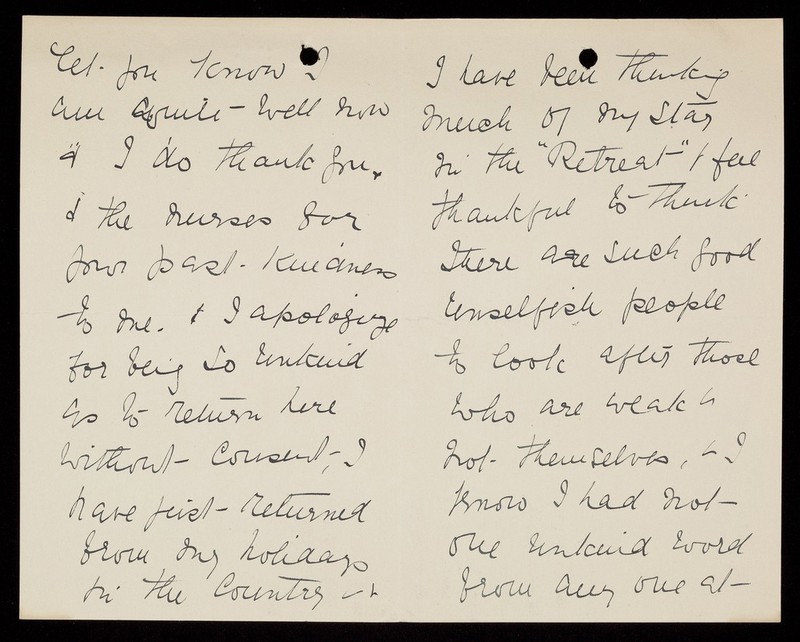 let you know I
am quite well now
& I do thank you,
& the nurses for
your past kindness
to me. & I apologize
for being so unkind
as to return here
without consent, I
have just returned
from my holidays
in the country &
I have been thinking
much of my stay
in the "Retreat" & feel
thankful to think
there are such good
unselfish people
to look after those
who are weak &
not themselves, & I
know I had not
one unkind word
from any one at